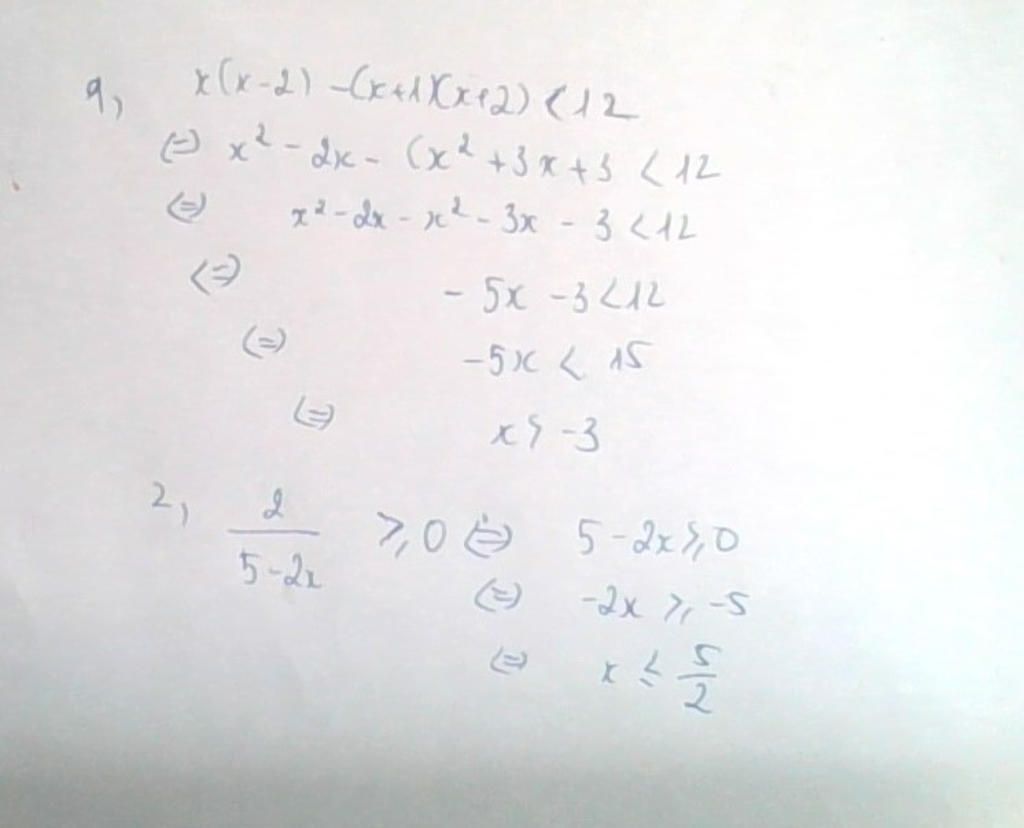 1, x(x-2) -(x+1)(x+2) < 12
(=) x² - 2x - (x² + 3x + 3 < 12
<=> x² - 2x - x² - 3x - 3 < 12
<=> - 5x - 3 < 12
(=) -5x < 15
(=) x > -3
2, 2/(5-2x) ≥ 0 <=> 5 - 2x ≥ 0
(=) -2x ≥ -5
(=) x ≤ 5/2